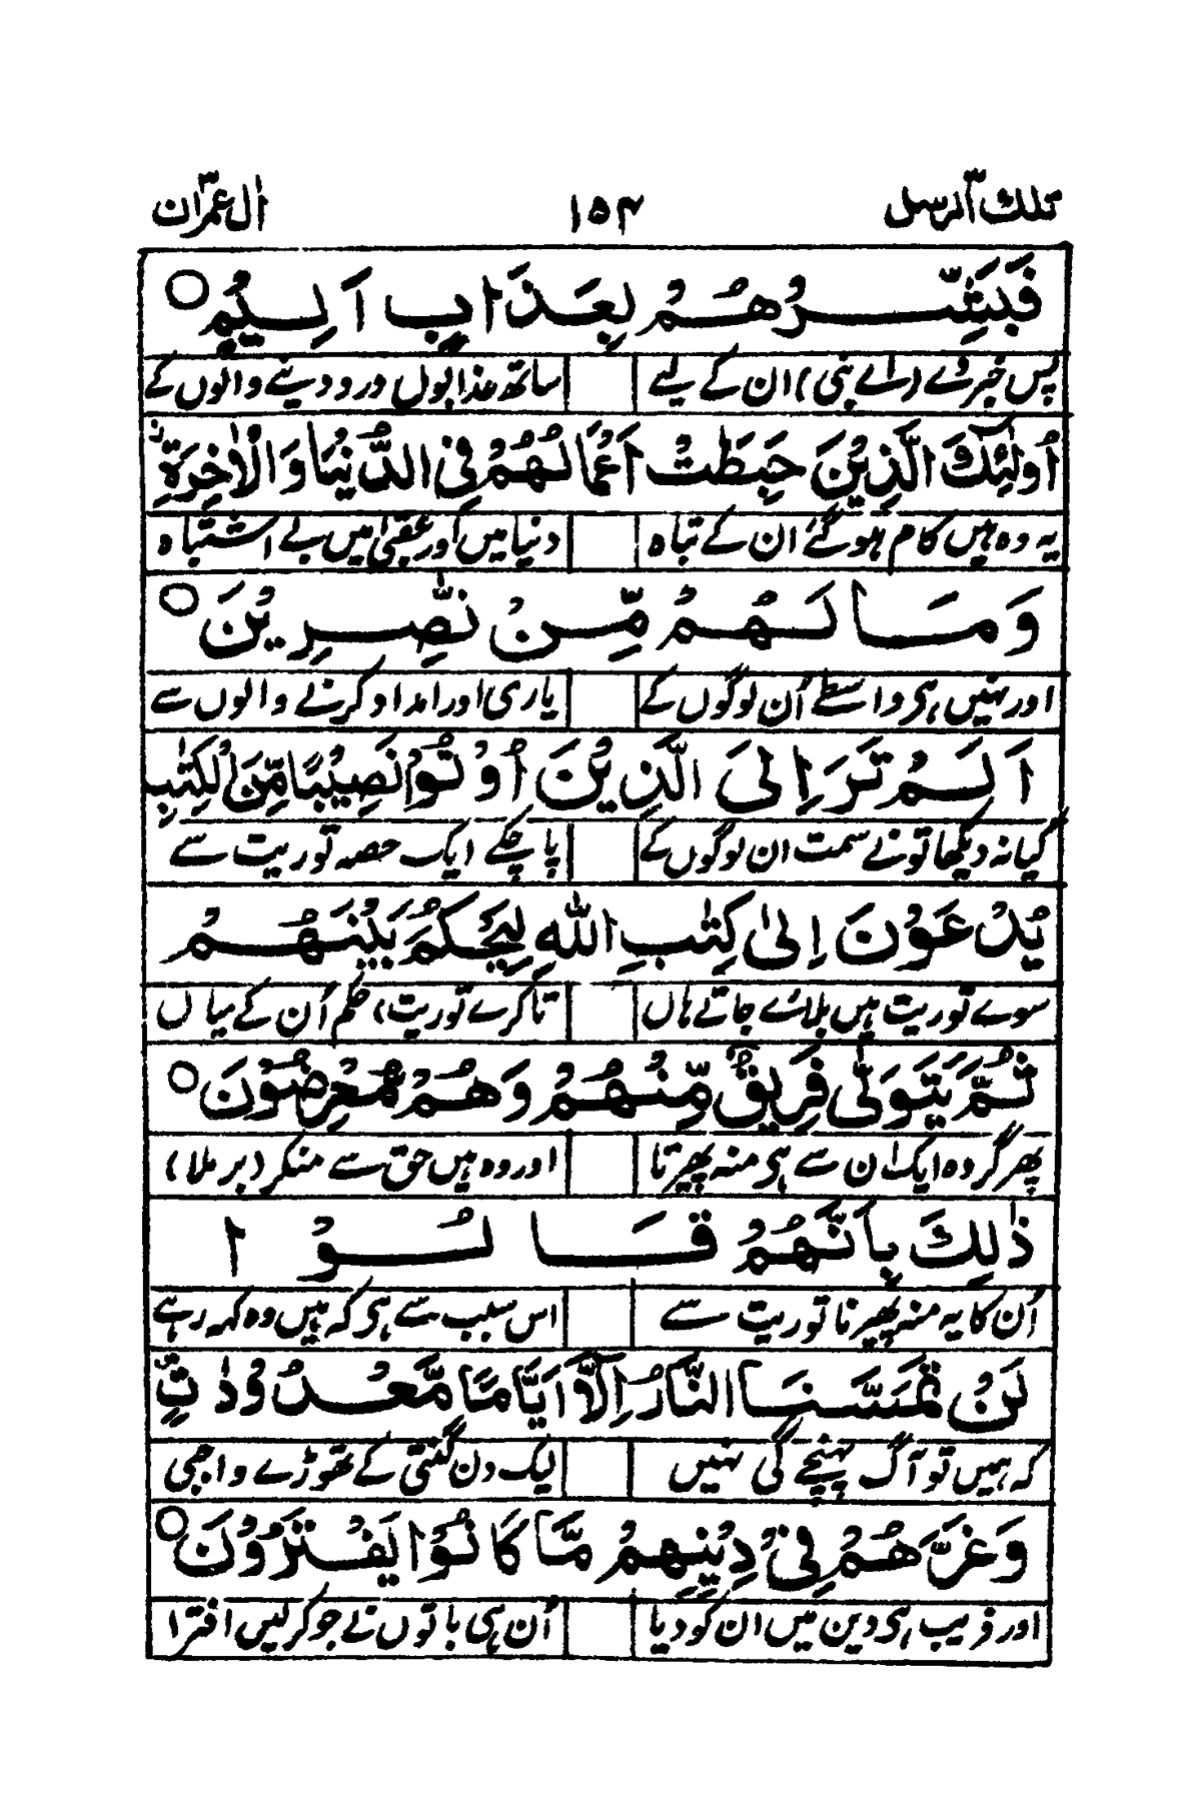 تلك الرسل ۳ ۱۵۴ اٰل عمرٰن ۳
فَبَشِّرْهُمْ بِعَذَابٍ اَلِيْمٍ ○
پس خبر دے (اے نبی) ان کے لیے ساتھ عذابوں درد دینے والوں کے
اُولٰٓئِكَ الَّذِيْنَ حَبِطَتْ اَعْمَالُهُمْ فِى الدُّنْيَا وَالْاٰخِرَةِ ز
یہ وہ ہیں کام ہو گئے ان کے تباہ دنیا میں اور عقبیٰ میں بے اشتباہ
وَمَا لَهُمْ مِّنْ نّٰصِرِيْنَ ○
اور نہیں ہی واسطے اُن لوگوں کے یاری اور امداد کرنے والوں سے
اَلَمْ تَرَ اِلَى الَّذِيْنَ اُوْتُوْا نَصِيْبًا مِّنَ الْكِتٰبِ
کیا نہ دیکھا تو نے سمت ان لوگوں کے پا چکے ایک حصہ توریت سے
يُدْعَوْنَ اِلٰى كِتٰبِ اللّٰهِ لِيَحْكُمَ بَيْنَهُمْ
سوے توریت ہیں بلائے جاتے ہاں تا کرے توریت، حکم اُن کے میاں
ثُمَّ يَتَوَلّٰى فَرِيْقٌ مِّنْهُمْ وَهُمْ مُّعْرِضُوْنَ ○
پھر گروہ ایک ان سے ہی منہ پھیرتا اور وہ ہیں حق سے منکر (برملا)
ذٰلِكَ بِاَنَّهُمْ قَالُوْا
اُن کا یہ منہ پھیرنا توریت سے اس سبب سے ہی کہ ہیں وہ کہہ رہے
لَنْ تَمَسَّنَا النَّارُ اِلَّآ اَيَّامًا مَّعْدُوْدٰتٍ
کہ ہمیں تو آگ پہنچے گی نہیں لیک دن گنتی کے تھوڑے واجبی
وَغَرَّهُمْ فِىْ دِيْنِهِمْ مَّا كَانُوْا يَفْتَرُوْنَ ○
اور فریب ہی دین میں ان کو دیا اُن ہی باتوں نے جو کر لیں افترا